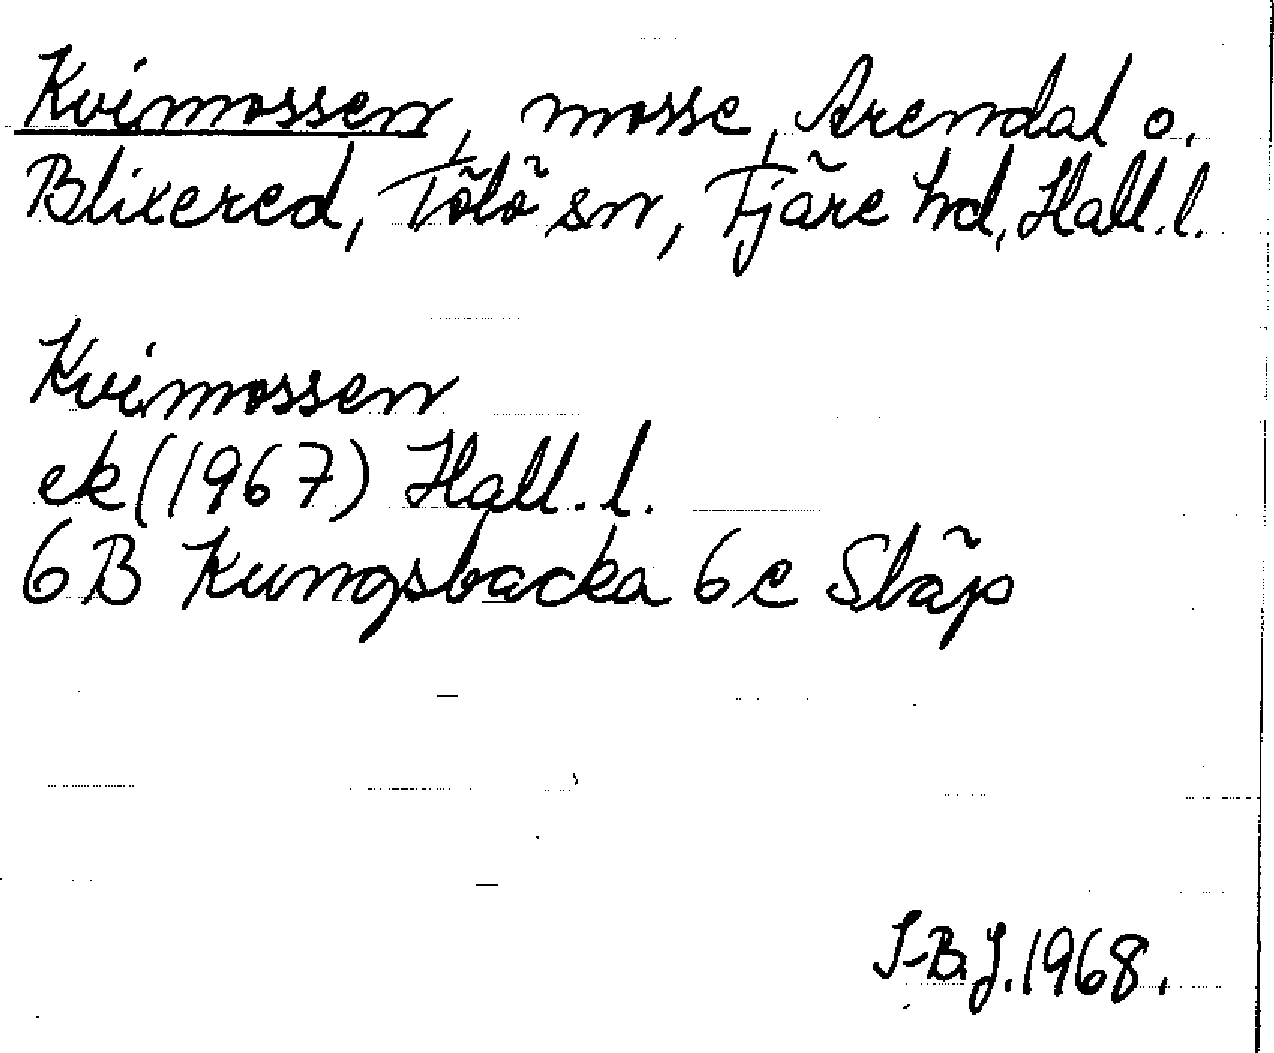 Kvimossen, mosse, Arendal o.
Blixered, Tölö sn, Fjäre hd, Hall.l.
Kvimossen
ek (1967) Hall.l.
6B Kungsbacka 6c Släp
I-B.J. 1968.